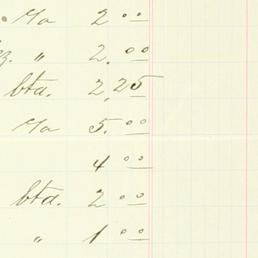 . Mo 2 00
z. " 2.00
btd. 2,25
Mo 5.00
4 00
btd. 2 00
" 1 00